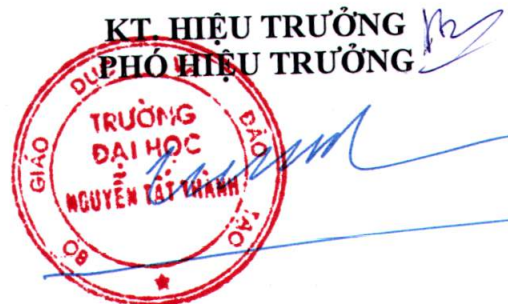 KT. HIỆU TRƯỞNG
PHÓ HIỆU TRƯỞNG
BỘ GIÁO DỤC VÀ ĐÀO TẠO
TRƯỜNG
ĐẠI HỌC
NGUYỄN TẤT THÀNH